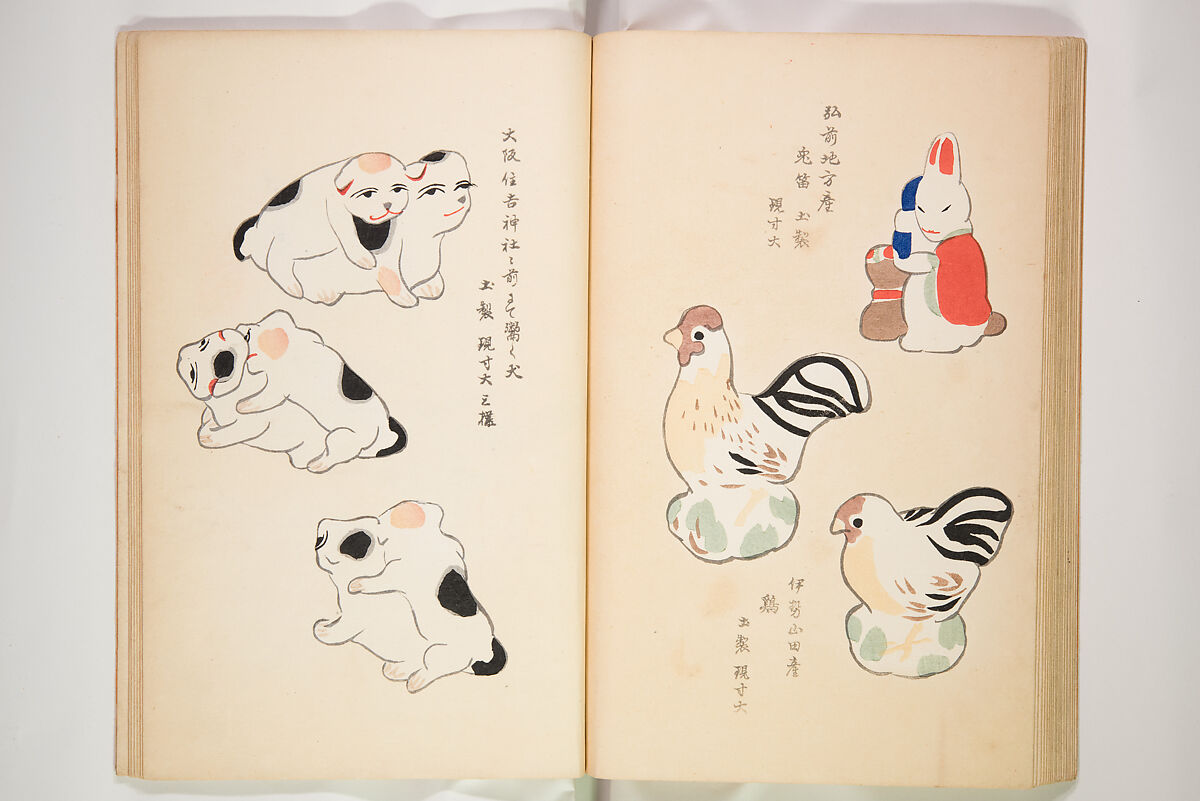 弘前地方産
兎笛 土製
現寸大
伊勢山田産
鶏
土製 現寸大
大阪住吉神社之前まて鬻く犬
土製 現寸大三様